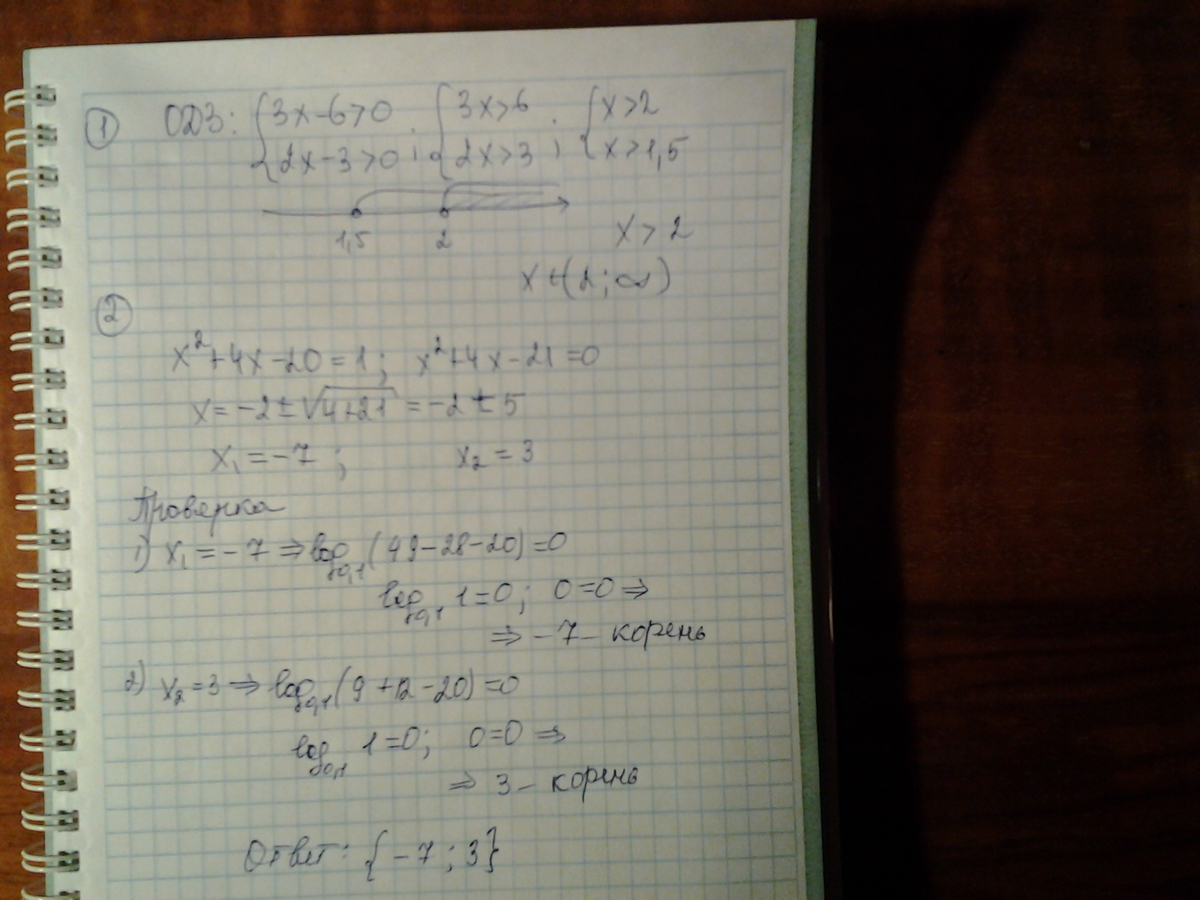 ① ОДЗ: {3x-6>0 ; {3x>6 ; {x>2
{2x-3>0 {2x>3 {x>1,5
1,5 2
x > 2
x ∈ (2; ∞)
②
x²+4x-20=1; x²+4x-21=0
x=-2±√4+21 = -2±5
x₁=-7; x₂=3
Проверка
1) x₁=-7 ⇒ log₀,₁(49-28-20)=0
log₀,₁ 1=0; 0=0 ⇒
⇒ -7 - корень
2) x₂=3 ⇒ log₀,₁(9+12-20)=0
log₀,₁ 1=0; 0=0 ⇒
⇒ 3 - корень
Ответ: {-7; 3}